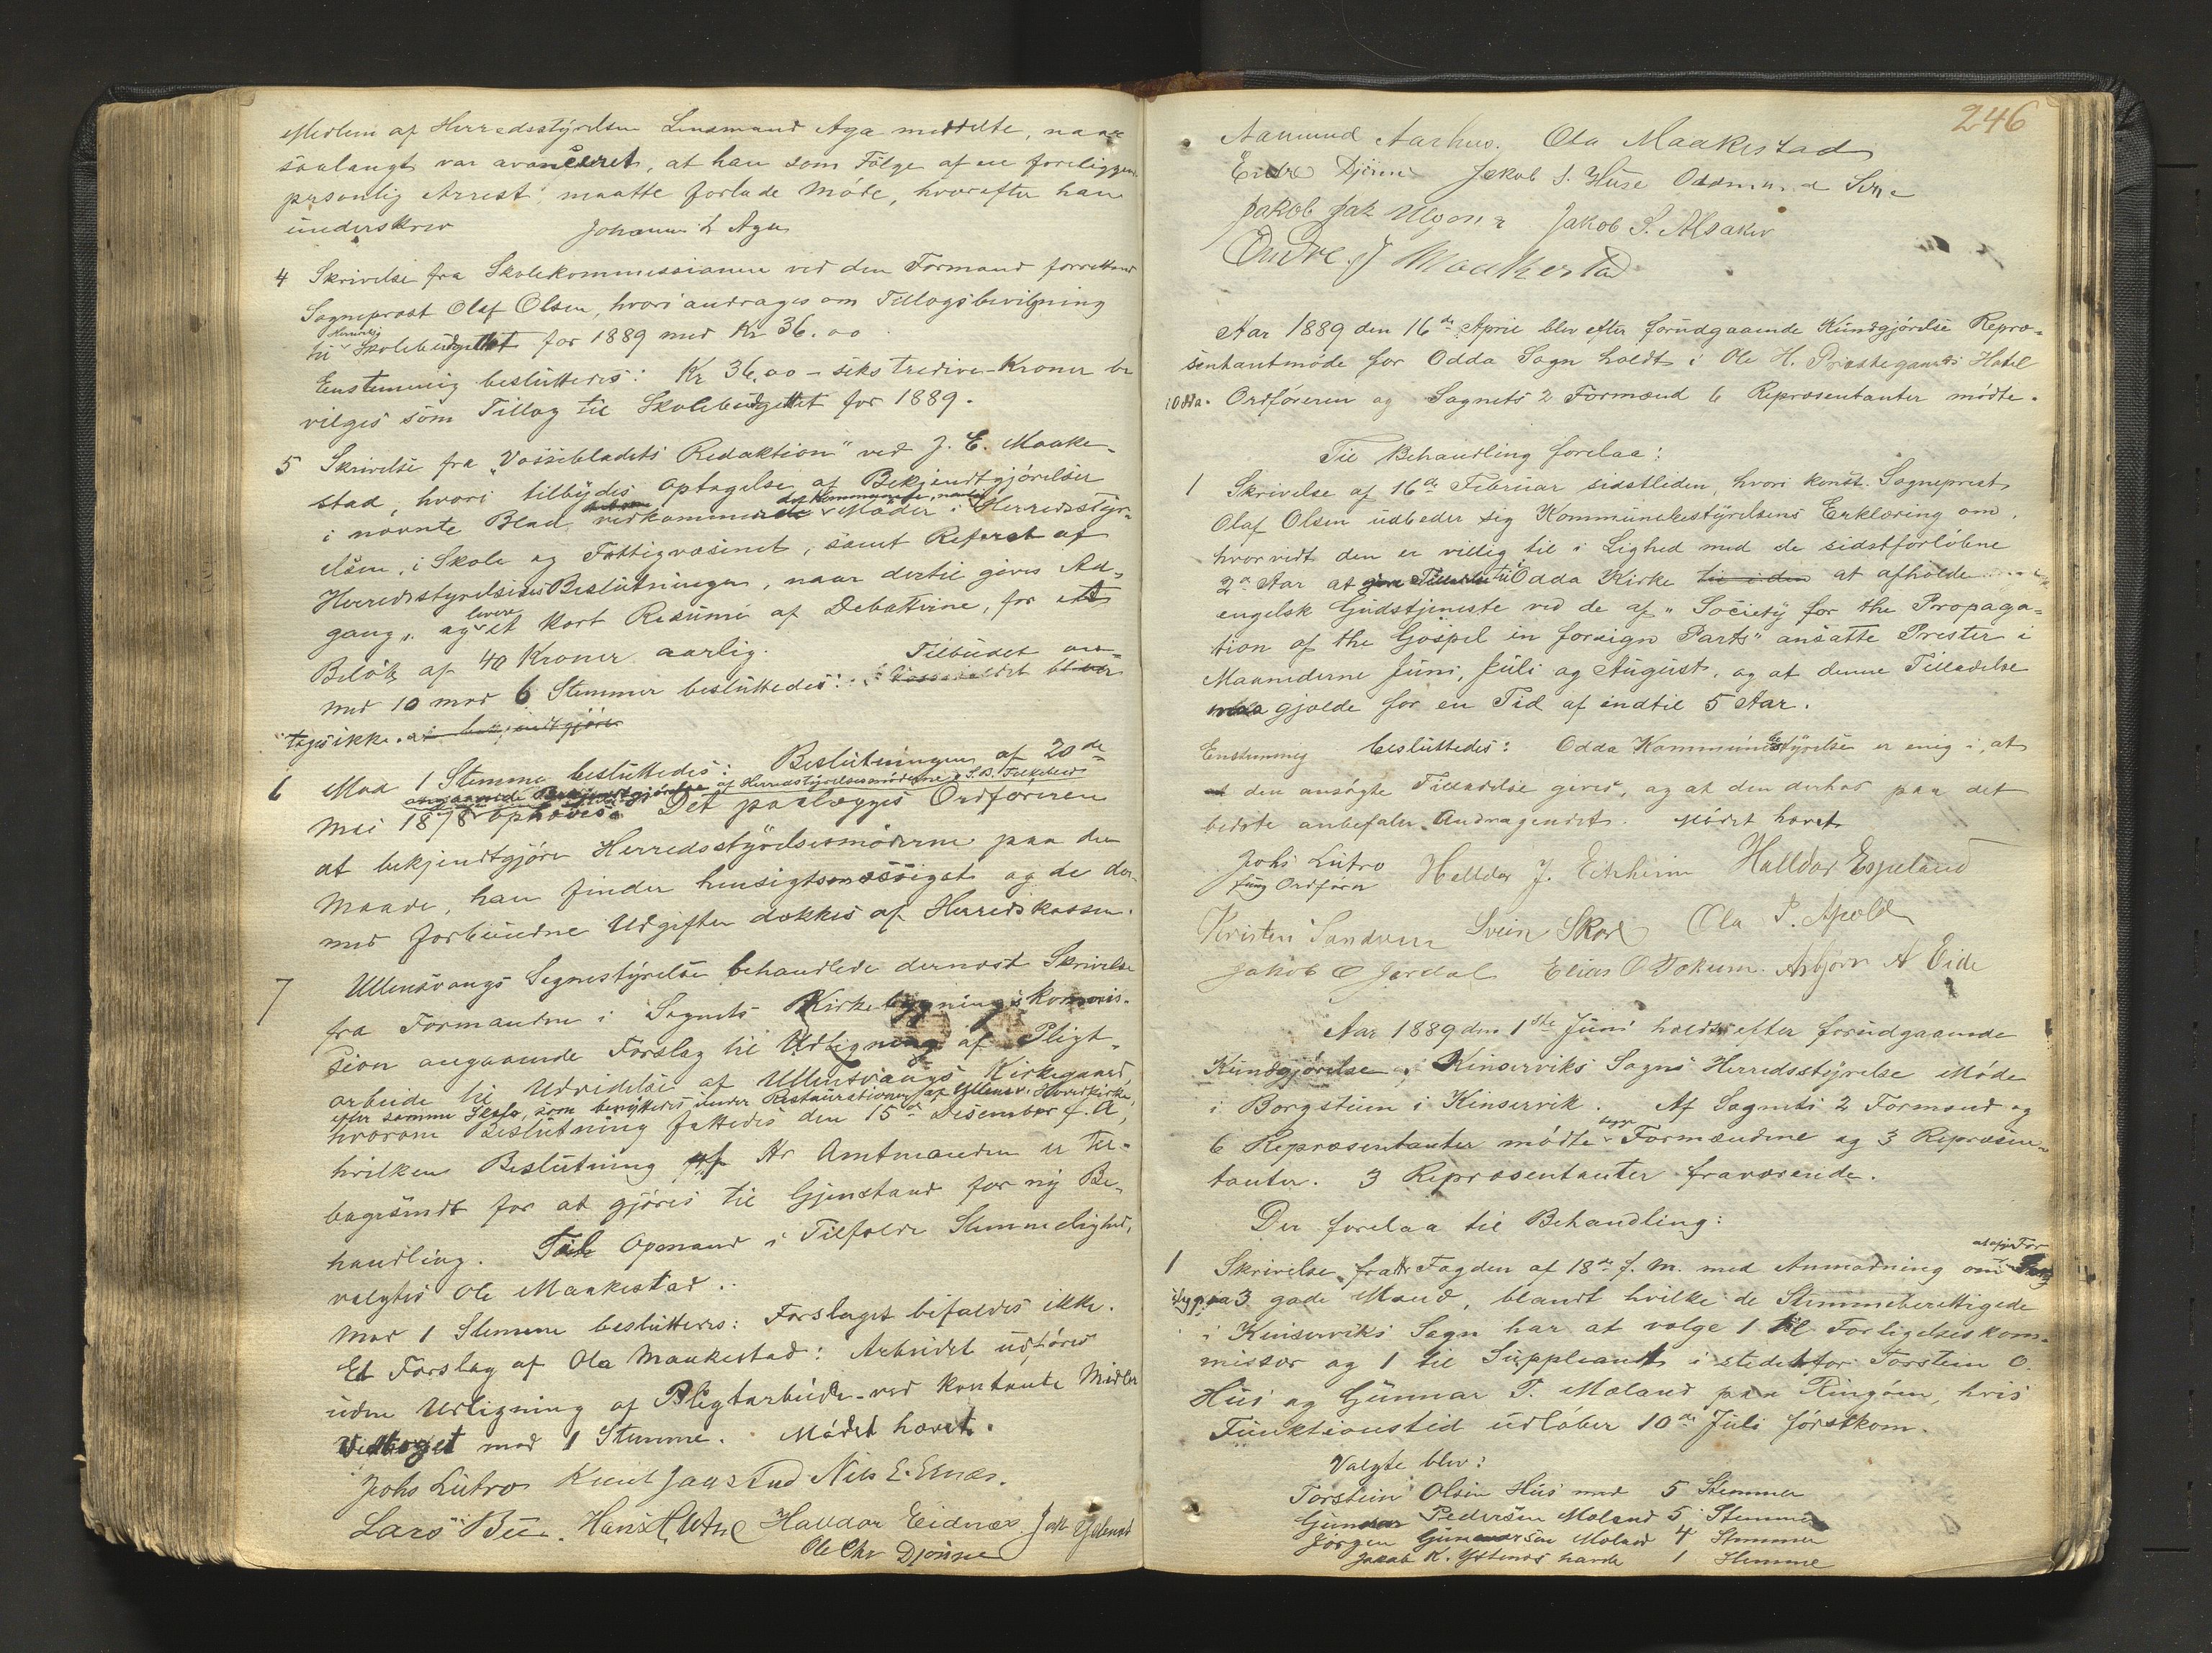 Medlem af Herredsstyrelsen Lensmand Aga meddelte, naar
saalangt var avanceret, at han som Følge af en foreliggende
personlig Arrest maatte forlade Møde, hvorefter han
underskrev
Johannes L Aga
4 Skrivelse fra Skolekommissionen ved den Formand
Sogneprest Olaf Olsen, hvori andrages om Tillægsbevilgning
til Skolebudgettet for 1889 med Kr 36.00
Enstemmig besluttedes: Kr 36.00 - seks tredive - Kroner be
vilges som Tillæg til Skolebudgettet for 1889.
5 Skrivelse fra "Vossebladets Redaktion" ved J. E. Maake-
stad, hvori tilbydes Optagelse af Bekjendtgjørelser
i nævnte Blad vedkommende Møder i Herredsstyr-
elsen, i Skole og Fattigvæsenet, samt Referat af
Herredsstyrelsens Beslutninger, naar dertil gives Ad-
gang, og levere et kort Resumé af Debatterne, for et
Beløb af 40 Kroner aarlig.
Med 10 mod 6 Stemmer besluttedes: Tilbudet mod-
tages ikke.
6 Mod 1 Stemme besluttedes: Beslutningen af 20de
angaaende Bekjendtgjørelse af Herredsstyrelsesmøderne i S. B. Folkeblad
Mai 1878 ophæves. Det paalægges Ordføreren
at bekjendtgjøre Herredsstyrelsesmøderne paa den
Maade, han finder hensigtsmæssigst og de der-
med forbundne Udgifter dækkes af Herredskassen.
7 Ullensvangs Sognestyrelse behandlede dernæst Skrivelse
fra Formanden i Sognets Kirkebygningskommis-
sion angaaende Forslag til Udligning af Pligt-
arbeide til Udvidelse af Ullensvangs Kirkegaard
efter samme Skala, som benyttedes under Restaurationen af Ullensv. Hovedkirke,
hvorom Beslutning fattedes den 15de Desember f. A,
hvilken Beslutning af Hr Amtmanden er til-
bagesendt for at gjøres til Gjenstand for ny Be-
handling. Til Opmand i Tilfælde Stemmelighed,
valgtes Ole Maakestad.
Mod 1 Stemme besluttedes: Forslaget bifaldes ikke.
Et Forslag af Ola Maakestad: Arbeidet udføres
uden Udligning af Pligtarbeide - ved kontante Midler
Vedtoget mod 1 Stemme. Mødet hævet.
Johs Lutro Knut Jaastad Nils E. Ernæs.
Lars Bu. Hans Utne Halldor Eidnæs
Ole Chr Djønne
246
Aamund Aarhus. Ola Maakestad
Endre Djønne Jakob S. Huse Oddmund
Jakob Jak Jakob S. Alsaker
Endre J Maakestad
Aar 1889 den 16de April blev efter forudgaaende Kundgjørelse Repræ-
sentantmøde for Odda Sogn holdt i Ole H. Præstegaards Hotel
i Odda. Ordføreren og Sognets 2 Formænd 6 Repræsentanter mødte.
Til Behandling forelaa:
1 Skrivelse af 16de Februar sidstleden, hvori konst. Sogneprest
Olaf Olsen udbeder sig Kommunebestyrelsens Erklæring om
hvorvidt den er villig til i Lighed med de sidstforløbne
2de Aar at Odda Kirke at afholde
engelsk Gudstjeneste ved de af "Society for the Propaga-
tion of the Gospel in foreign Parts" ansatte Prester i
Maanederne Juni, Juli og August, og at denne Tilladelse
maa gjælde for en Tid af indtil 5 Aar.
Enstemmig besluttedes: Odda Kommunestyrelse er enig i, at
den ansøgte Tilladelse gives, og at den derhos paa det
bedste anbefaler Andragendet. Mødet hævet
Johs Lutro Halldor J. Eitrheim Halldor Espeland
fung Ordfører
Kristen Sandven Svein Skare Ola P. Apold
Jakob O Jordal Elias O Tokum. Asbjørn A Eide
Aar 1889 den 1ste Juni holdtes efter forudgaaende
Kundgjørelse i Kinserviks Sogns Herredsstyrelse Møde
i Borgstuen i Kinservik. Af Sognets 2 Formænd og
6 Repræsentanter mødte begge Formændene og 3 Repræsen-
tanter. 3 Repræsentanter fraværende.
Der forelaa til Behandling:
1 Skrivelse fra Hr Fogden af 18de f. M. med Anmodning om at afgi For
slag paa 3 gode Mænd, blandt hvilke de Stemmeberettigede
i Kinserviks Sogn har at vælge 1 til Forligelseskom-
missær og 1 til Suppleant i stedetfor Torstein O.
Hus og Gunnar P. Mæland paa Ringøen, hvis
Funktionstid udløber 10de Juli førstkom.
Valgte blev:
Torstein Olsen Hus med 5 Stemmer
Gunnar Pedersen Mæland 5 Stemmer
Jørgen Gunnarsen Mæland 4 Stemmer
Jakob K. Ystenæs havde 1 Stemme